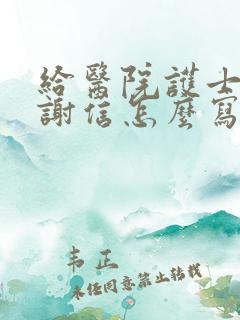 給醫院護士
謝信怎麼寫
韦正
未经同意禁止转载